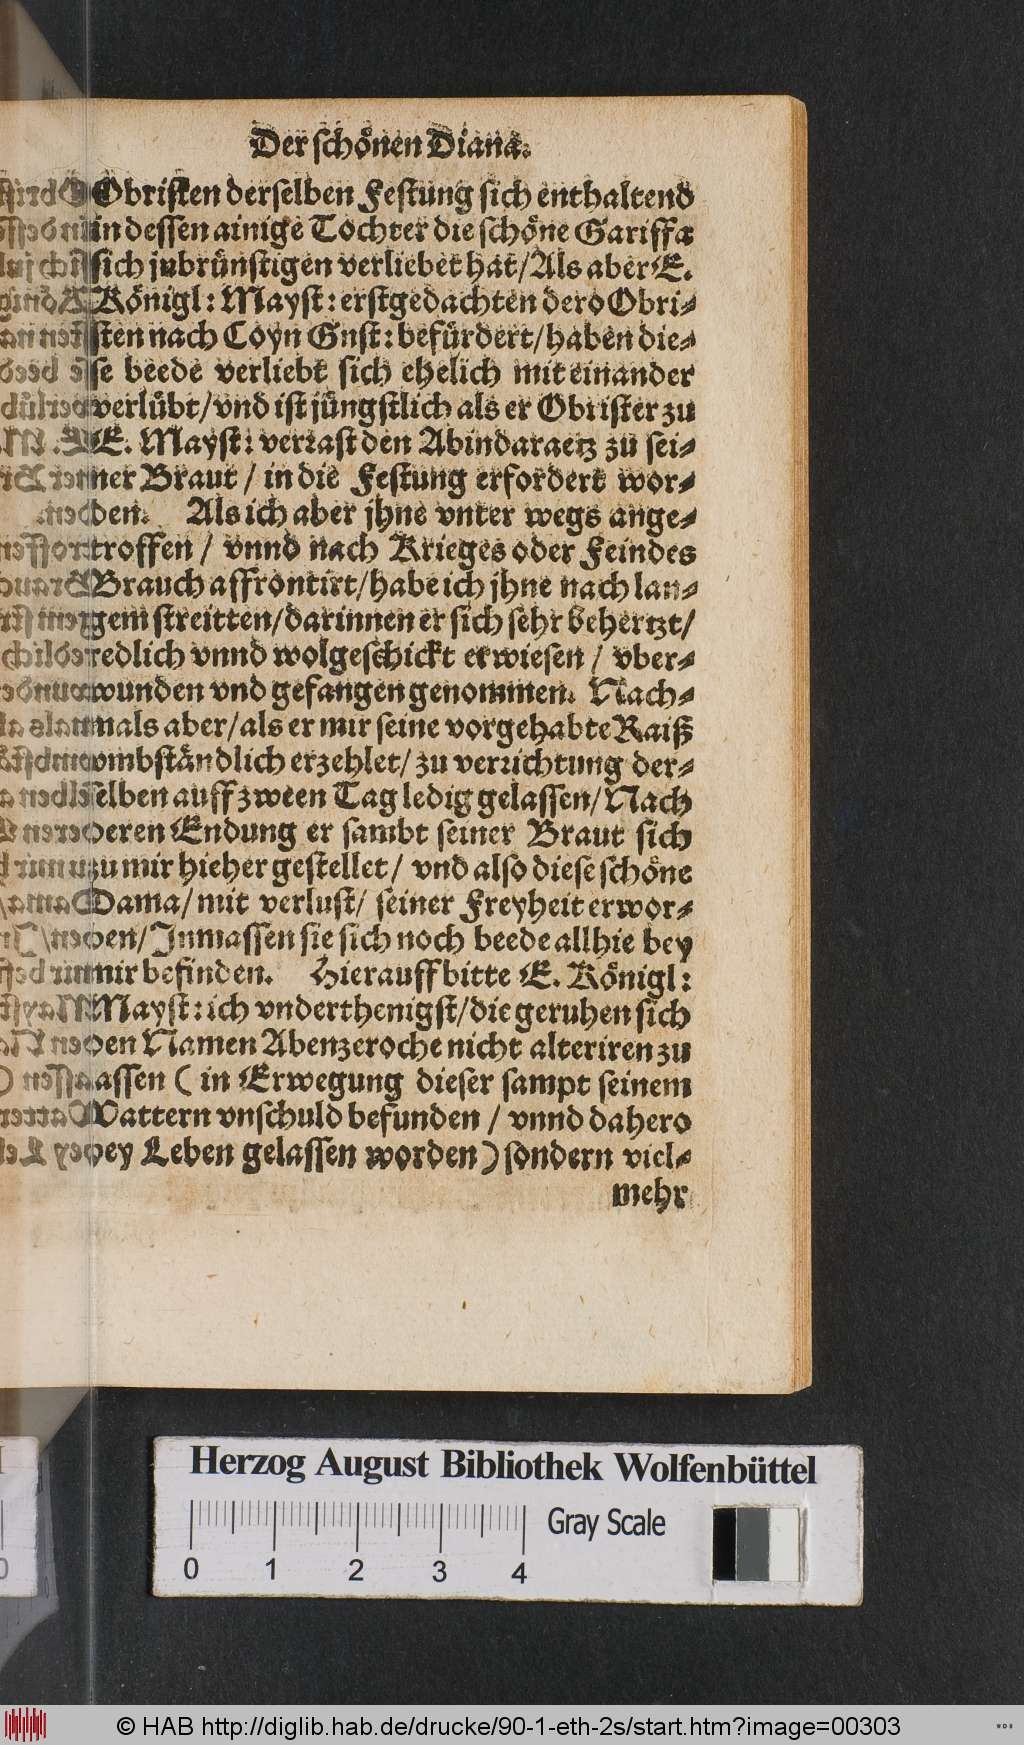 Der schönen Diana.
Obristen derselben Festung sich enthaltend
in dessen ainige Tochter die schöne Gariffa
sich jnbrünstigen verliebet hat/ Als aber E.
Königl: Mayst: erstgedachten dero Obri-
sten nach Coyn Gnst: befürdert/ haben die-
se beede verliebt sich ehelich mit einander
verlübt/ vnd ist jüngstlich als er Obrister zu
E. Mayst: verrast den Abindaraetz zu sei-
ner Braut / in die Festung erfordert wor-
den. Als ich aber jhne vnter wegs ange-
troffen / vnnd nach Krieges oder Feindes
Brauch affrontirt/ habe ich jhne nach lan-
gem streitten/ darinnen er sich sehr behertzt/
redlich vnnd wolgeschickt erwiesen / vber-
wunden vnd gefangen genommen. Nach-
mals aber/ als er mir seine vorgehabte Raiß
vmbständlich erzehlet/ zu verrichtung der-
selben auff zween Tag ledig gelassen/ Nach
deren Endung er sambt seiner Braut sich
zu mir hieher gestellet/ vnd also diese schöne
Dama/ mit verlust/ seiner Freyheit erwor-
ben/ Jnmassen sie sich noch beede allhie bey
mir befinden. Hierauff bitte E. Königl:
Mayst: ich vnderthenigst/ die geruhen sich
den Namen Abenzeroche nicht alteriren zu
lassen ( in Erwegung dieser sampt seinem
Vattern vnschuld befunden / vnnd dahero
bey Leben gelassen worden ) sondern viel-
mehr
Herzog August Bibliothek Wolfenbüttel
0 1 2 3 4 Gray Scale
© HAB http://diglib.hab.de/drucke/90-1-eth-2s/start.htm?image=00303